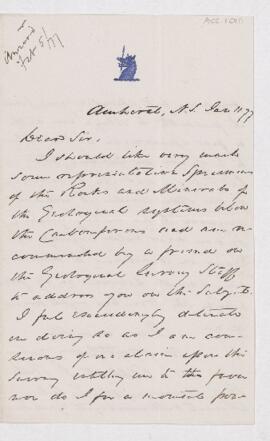 Answered
Feb 5/77
Amherst, N.S. Jan 11 77
Dear Sir,
I should like very much
some representative Specimens
of the Rocks and Minerals of
the Geological systems below
the Carboniferous and am re-
commended by a friend on
the Geological Survey Staff
to address you on the Subject.
I feel exceedingly delicate
in doing so as I am con-
scious of no claim upon the
Survey entitling me to this favor
nor do I for a moment